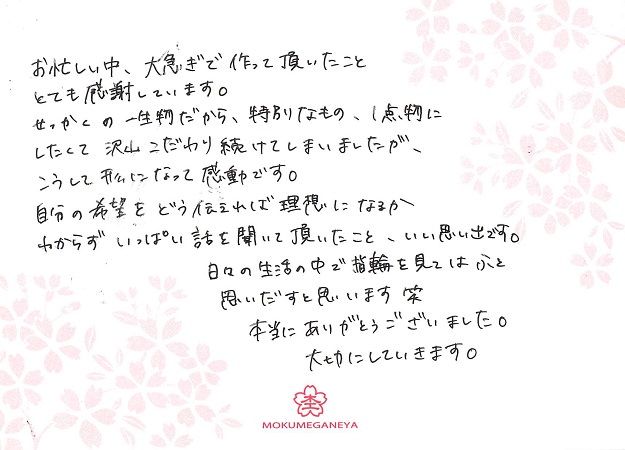 お忙しい中、大急ぎで作って頂いたこと
とても感謝しています。
せっかくの一生物だから、特別なもの、1点物に
したくて沢山こだわり続けてしまいましたが、
こうして形になって感動です。
自分の希望をどう伝えれば理想になるか
わからずいっぱい話を聞いて頂いたこと、いい思い出です。
日々の生活の中で指輪を見てはふと
思いだすと思います 笑
本当にありがとうございました。
大切にしていきます。
MOKUMEGANEYA